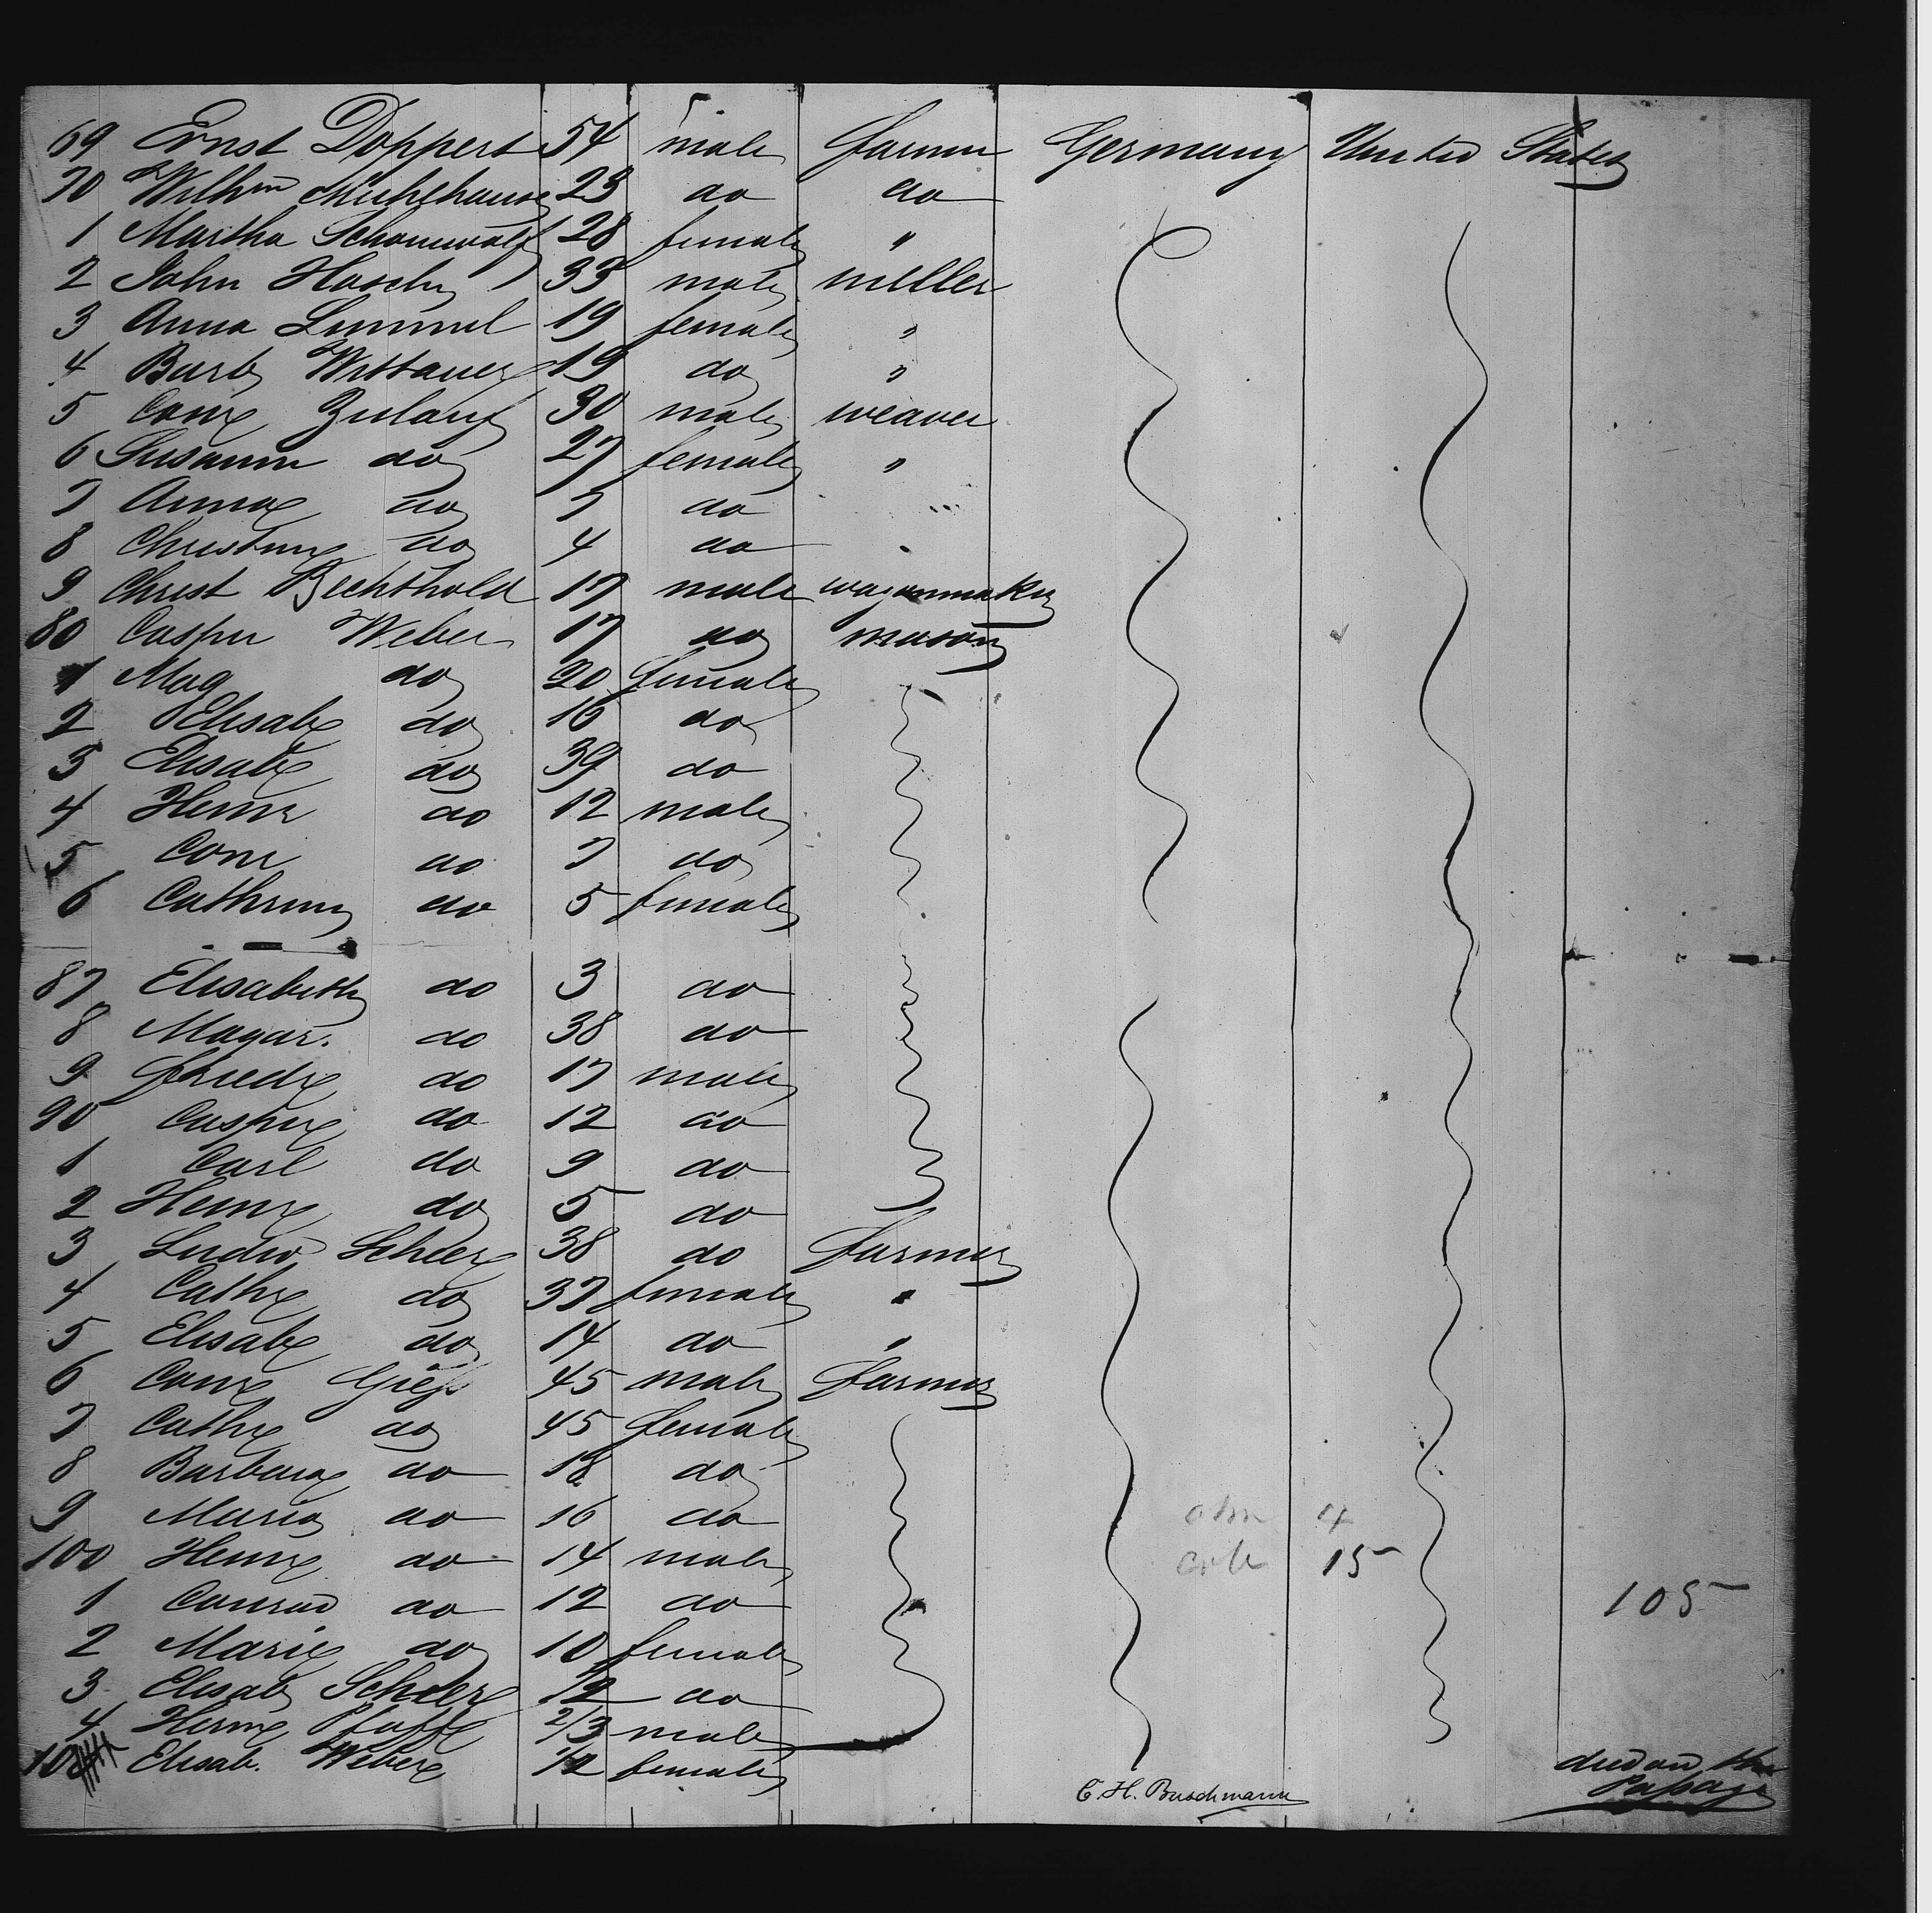 69 Ernst Doppert 54 male farmer Germany United States
70 Wilhm Mühlhause 23 do do
1 Martha Schonewolf 28 female "
2 John Hosch 33 male miller
3 Anna Lummel 19 female "
4 Barb Wittauer 19 do "
5 Conr Zulauf 30 male weaver
6 Susann do 27 female "
7 Anna do 7 do
8 Christine do 4 do
9 Christ Bechthold 17 male wagonmaker
80 Casper Weber 17 do mason
1 Mag do 20 female
2 Elisab do 16 do
3 Elisab do 39 do
4 Heinr do 12 male
5 Conr do 7 do
6 Cathrine do 5 female
87 Elisabeth do 3 do
8 Magar. do 38 do
9 Friedr do 17 male
90 Casper do 12 do
1 Carl do 9 do
2 Heinr do 5 do
3 Ludw Scheer 38 do farmer
4 Cathr do 37 female "
5 Elisab do 14 do "
6 Conr Gieß 45 male farmer
7 Cathr do 45 female
8 Barbara do 18 do
9 Maria do 16 do
100 Heinr do 14 male
1 Conrad do 12 do
2 Marie do 10 female
3 Elisab Scheer 1/2 do
4 Herm Pfaff 2/3 male
10 Elisab. Weber 1/2 female died on the
passage
C. H. Buschmann
4
15
105